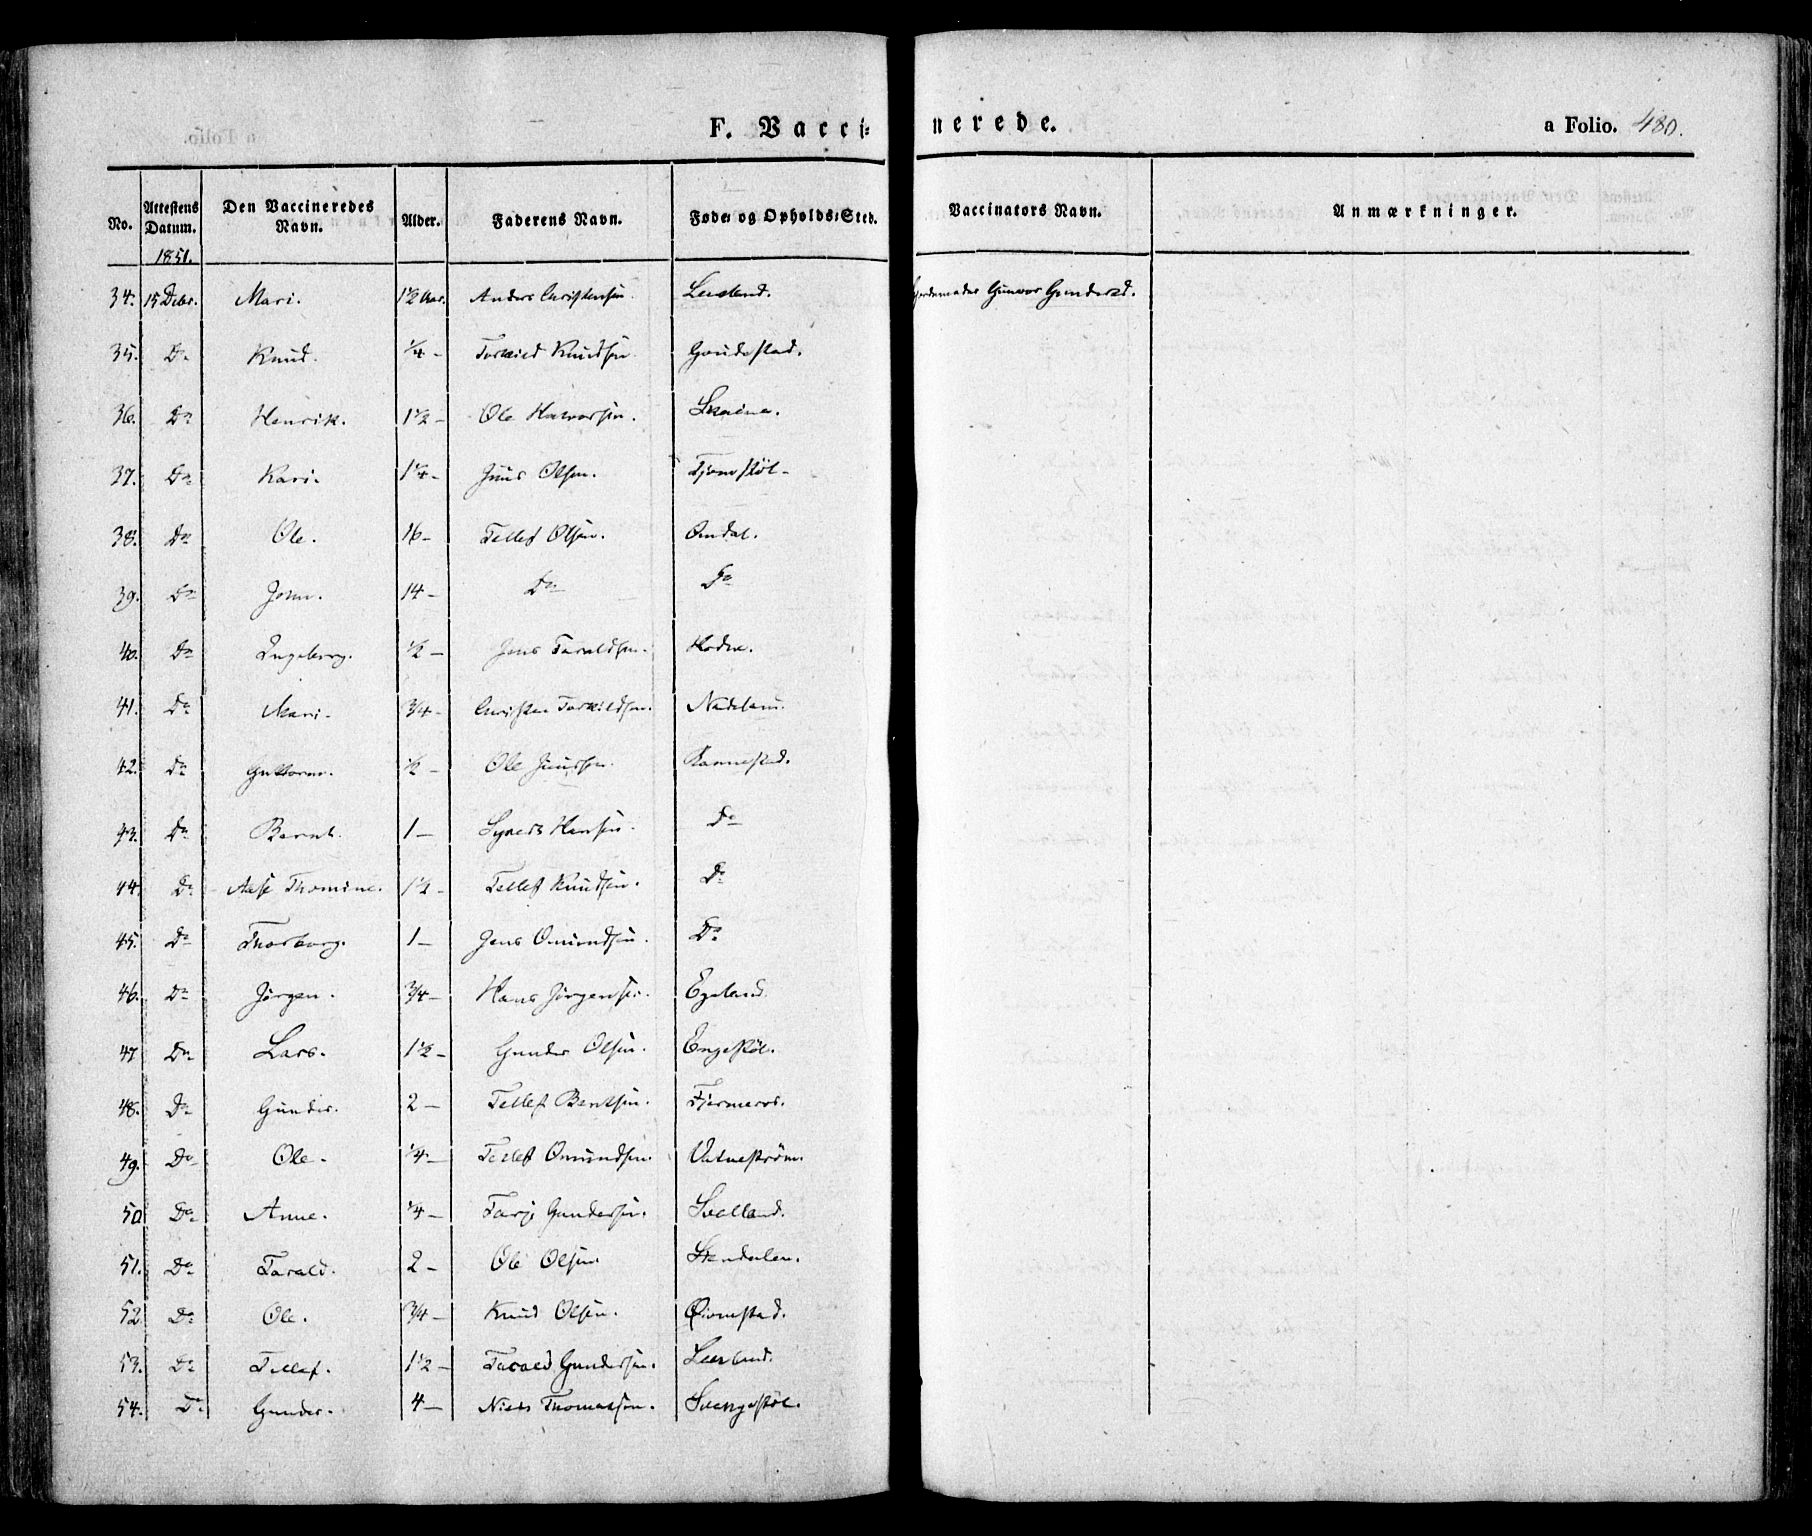 F. Vaccinerede.
a Folio. 480.
No. | Attestens Datum. 1851. | Den Vaccineredes Navn. | Alder. | Faderens Navn. | Føde- og Opholds-Sted. | Vaccinators Navn. | Anmærkninger.
34. | 15 Debr. | Mari. | 1 1/2 Aar. | Anders Christensen | | Gjordemoder Gunvor Gundersd.
35. | Do | Knud. | 1/4 – | Torkild Knudsen | Goudestad.
36. | Do | Henrik. | 1 1/2 – | Ole Halvorsen.
37. | Do | Kari. | 1 1/4 – | Juus Olsen. | Tjomstøl –
38. | Do | Ole. | 16 – | Tellef Olsen. | Omdal.
39. | Do | John. | 14 – | Do | Do
40. | Do | Ingeborg. | 1/2 – | Jens Taraldsen.
41. | Do | Mari. | 3/4 – | Christen Torkildsen.
42. | Do | Guttorm. | 1/2 – | Ole Juussen. | Rannestad.
43. | Do | Bernt. | 1 – | Syvert Hansen. | Do
44. | Do | Aase Thomine. | 1 1/2 – | Tellef Knudsen. | Do
45. | Do | Thorborg. | 1 – | Jens Omundsen. | Do
46. | Do | Jørgen. | 3/4 – | Hans Jørgensen. | Egeland.
47 | Do | Lars. | 1 1/2 – | Gunder Olsen. | Engestøl.
48. | Do | Gunder. | 2 – | Tellef Bentsen. | Fjermeros.
49. | Do | Ole. | 1/4 – | Tellef Omundsen. | Vatnestrøm.
50 | Do | Anne. | 1/4 – | Tarje Gundersen. | Svalland.
51. | Do | Tarald. | 2 – | Ole Olsen.
52. | Do | Ole. | 3/4 – | Knud Olsen. | Øiomstad.
53. | Do | Tellef. | 1 1/2 – | Tarald Gundersen.
54. | Do | Gunder. | 4 – | Niels Thomassen. | Svangestøl.